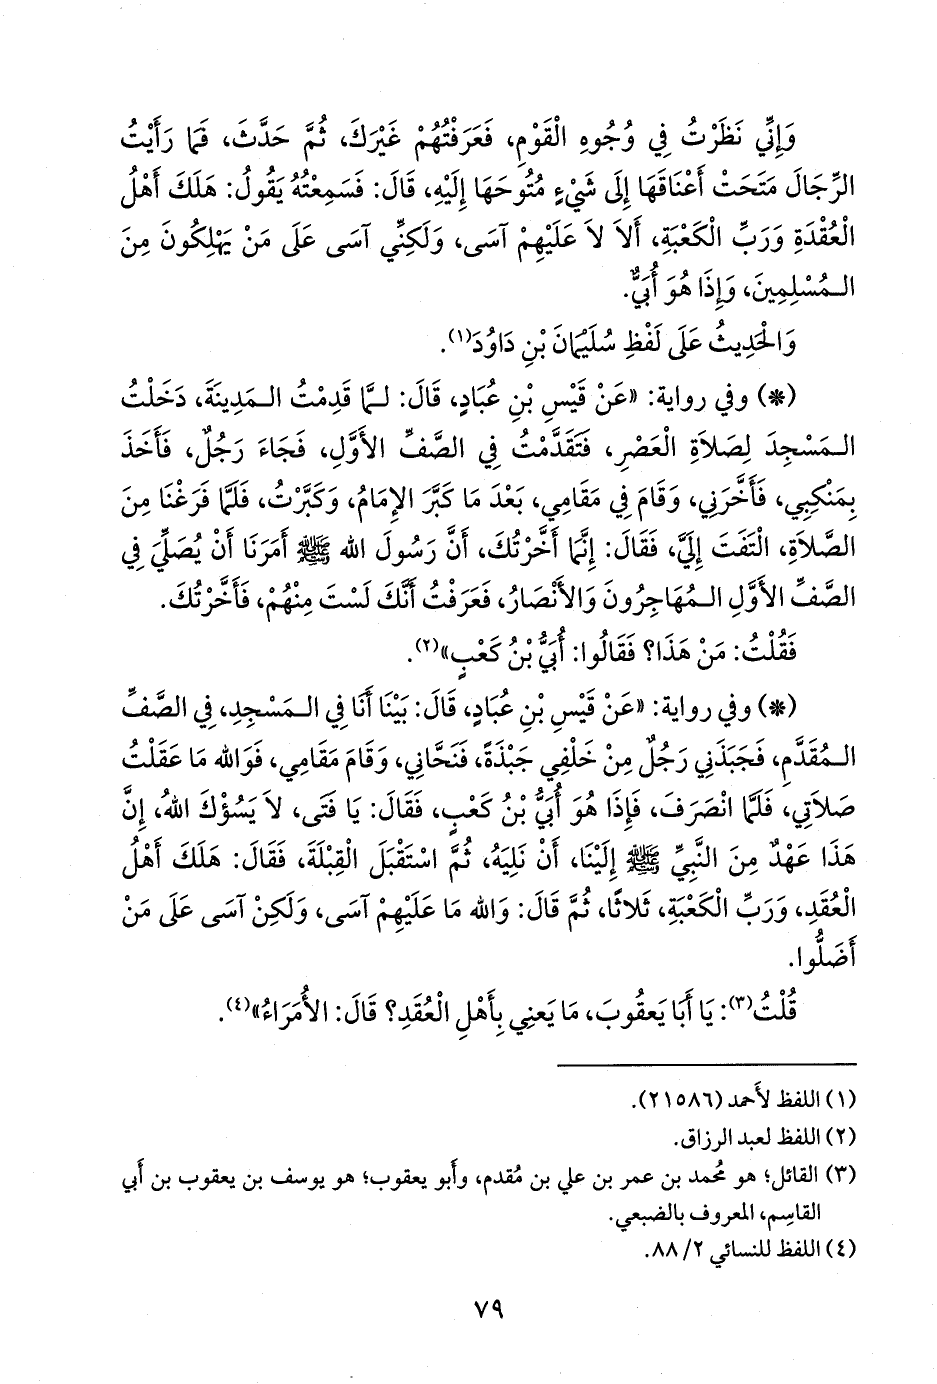 وَإِنِّي نَظَرْتُ فِي وُجُوهِ الْقَوْمِ، فَعَرَفْتُهُمْ غَيْرَكَ، ثُمَّ حَدَّثَ، فَمَا رَأَيْتُ
الرِّجَالَ مَتَحَتْ أَعْنَاقَهَا إِلَى شَيْءٍ مُتُوحَهَا إِلَيْهِ، قَالَ: فَسَمِعْتُهُ يَقُولُ: هَلَكَ أَهْلُ
الْعُقْدَةِ وَرَبِّ الْكَعْبَةِ، أَلاَ لاَ عَلَيْهِمْ آسَى، وَلَكِنِّي آسَى عَلَى مَنْ يَهْلِكُونَ مِنَ
الـمُسْلِمِينَ، وَإِذَا هُوَ أُبَيٌّ.
وَالْحَدِيثُ عَلَى لَفْظِ سُلَيْمَانَ بْنِ دَاوُدَ(١).
(*) وفي رواية: «عَنْ قَيْسِ بْنِ عُبَادٍ، قَالَ: لـمَّا قَدِمْتُ الـمَدِينَةَ، دَخَلْتُ
الـمَسْجِدَ لِصَلاَةِ الْعَصْرِ، فَتَقَدَّمْتُ فِي الصَّفِّ الأَوَّلِ، فَجَاءَ رَجُلٌ، فَأَخَذَ
بِمَنْكِبِي، فَأَخَّرَنِي، وَقَامَ فِي مَقَامِي، بَعْدَ مَا كَبَّرَ الإِمَامُ، وَكَبَّرْتُ، فَلَمَّا فَرَغْنَا مِنَ
الصَّلاَةِ، الْتَفَتَ إِلَيَّ، فَقَالَ: إِنَّمَا أَخَّرْتُكَ، أَنَّ رَسُولَ الله ﷺ أَمَرَنَا أَنْ يُصَلِّيَ فِي
الصَّفِّ الأَوَّلِ الـمُهَاجِرُونَ وَالأَنْصَارُ، فَعَرَفْتُ أَنَّكَ لَسْتَ مِنْهُمْ، فَأَخَّرْتُكَ.
فَقُلْتُ: مَنْ هَذَا؟ فَقَالُوا: أُبَيُّ بْنُ كَعْبٍ»(٢).
(*) وفي رواية: «عَنْ قَيْسِ بْنِ عُبَادٍ، قَالَ: بَيْنَا أَنَا فِي الـمَسْجِدِ، فِي الصَّفِّ
الـمُقَدَّمِ، فَجَبَذَنِي رَجُلٌ مِنْ خَلْفِي جَبْذَةً، فَنَحَّانِي، وَقَامَ مَقَامِي، فَوَالله مَا عَقَلْتُ
صَلاَتِي، فَلَمَّا انْصَرَفَ، فَإِذَا هُوَ أُبَيُّ بْنُ كَعْبٍ، فَقَالَ: يَا فَتَى، لاَ يَسُؤْكَ اللهُ، إِنَّ
هَذَا عَهْدٌ مِنَ النَّبِيِّ ﷺ إِلَيْنَا، أَنْ نَلِيَهُ، ثُمَّ اسْتَقْبَلَ الْقِبْلَةَ، فَقَالَ: هَلَكَ أَهْلُ
الْعُقَدِ، وَرَبِّ الْكَعْبَةِ، ثَلاَثًا، ثُمَّ قَالَ: وَالله مَا عَلَيْهِمْ آسَى، وَلَكِنْ آسَى عَلَى مَنْ
أَضَلُّوا.
قُلْتُ(٣): يَا أَبَا يَعقُوبَ، مَا يَعنِي بِأَهْلِ الْعُقَدِ؟ قَالَ: الأُمَرَاءُ»(٤).
(١) اللفظ لأَحمد (٢١٥٨٦).
(٢) اللفظ لعبد الرزاق.
(٣) القائل؛ هو مُحمد بن عمر بن علي بن مُقدم، وأَبو يعقوب؛ هو يوسف بن يعقوب بن أَبي
القاسِم، المعروف بالضبعي.
(٤) اللفظ للنسائي ٢/ ٨٨.
٧٩